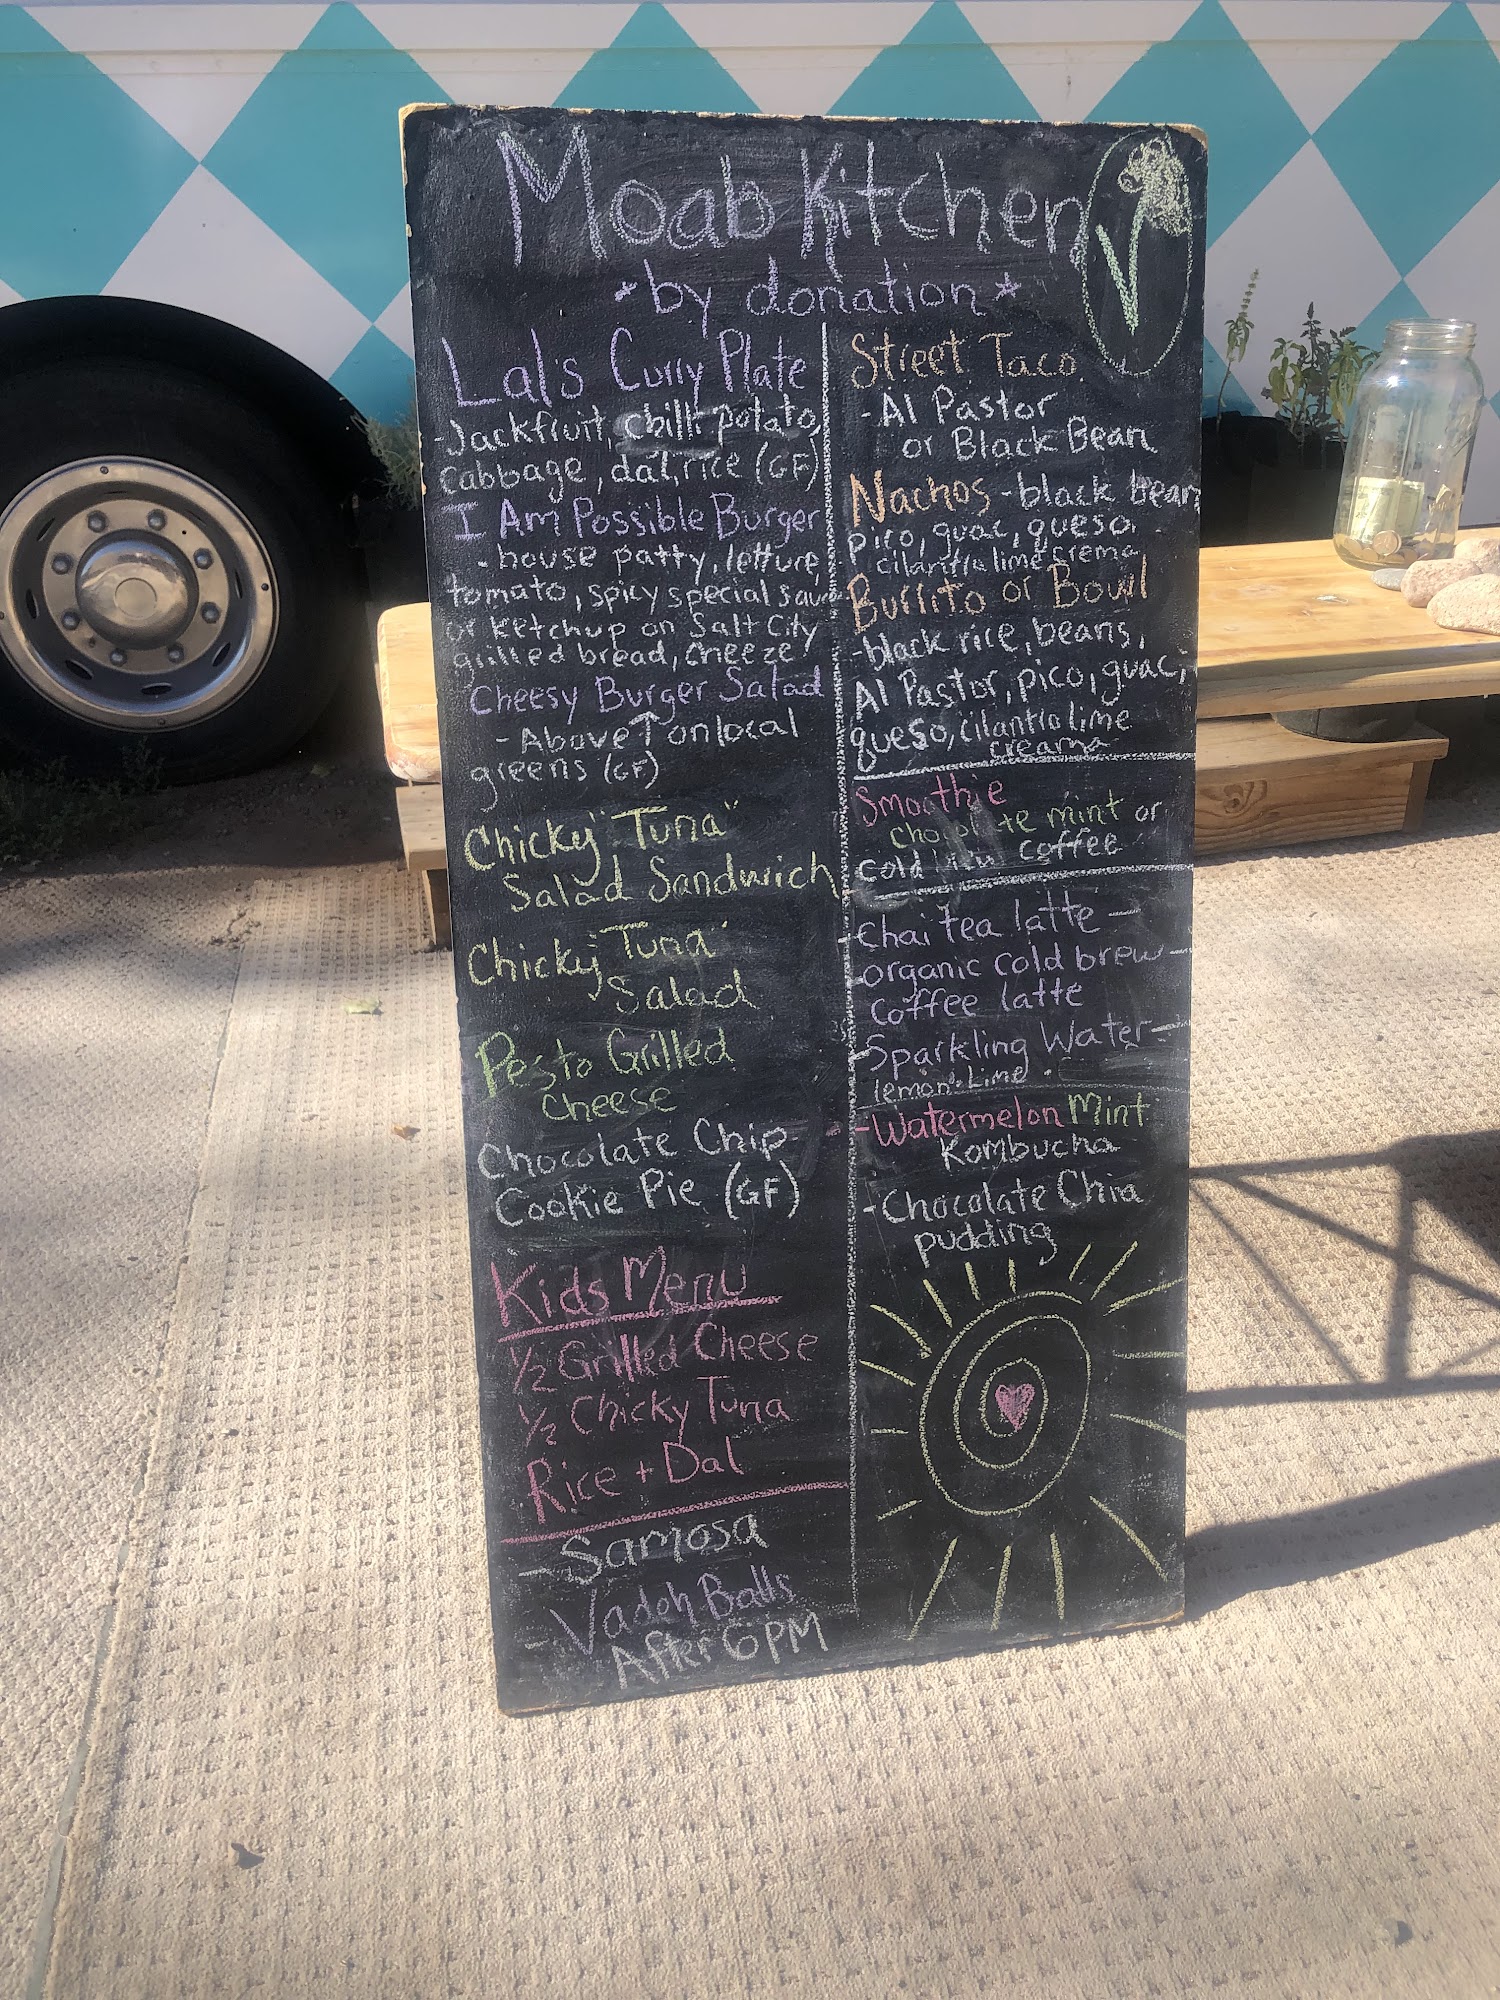 Moab Kitchen
*by donation*
Lal's Curry Plate
-Jackfruit, chilli potato,
cabbage, dal, rice (GF)
I Am Possible Burger
- house patty, letture,
tomato, spicy special sauce
or ketchup on Salt City
grilled bread, cheeze
Cheesy Burger Salad
- Above ↑ on local
greens (GF)
Chicky "Tuna"
Salad Sandwich
Chicky "Tuna"
Salad
Pesto Grilled
Cheese
Chocolate Chip
Cookie Pie (GF)
Kids Menu
1/2 Grilled Cheese
1/2 Chicky Tuna
Rice + Dal
- Samosa
- Vadoh Balls
After 6PM
Street Taco
- Al Pastor
or Black Bean
Nachos - black bean,
pico, guac, queso,
cilantro lime crema
Burrito or Bowl
- black rice, beans,
Al Pastor, pico, guac,
queso, cilantro lime
creama
Smoothie
chocolate mint or
cold brew coffee
- Chai tea latte -
- organic cold brew -
coffee latte
- Sparkling Water -
lemon·Lime
- Watermelon Mint
Kombucha
- Chocolate Chia
pudding